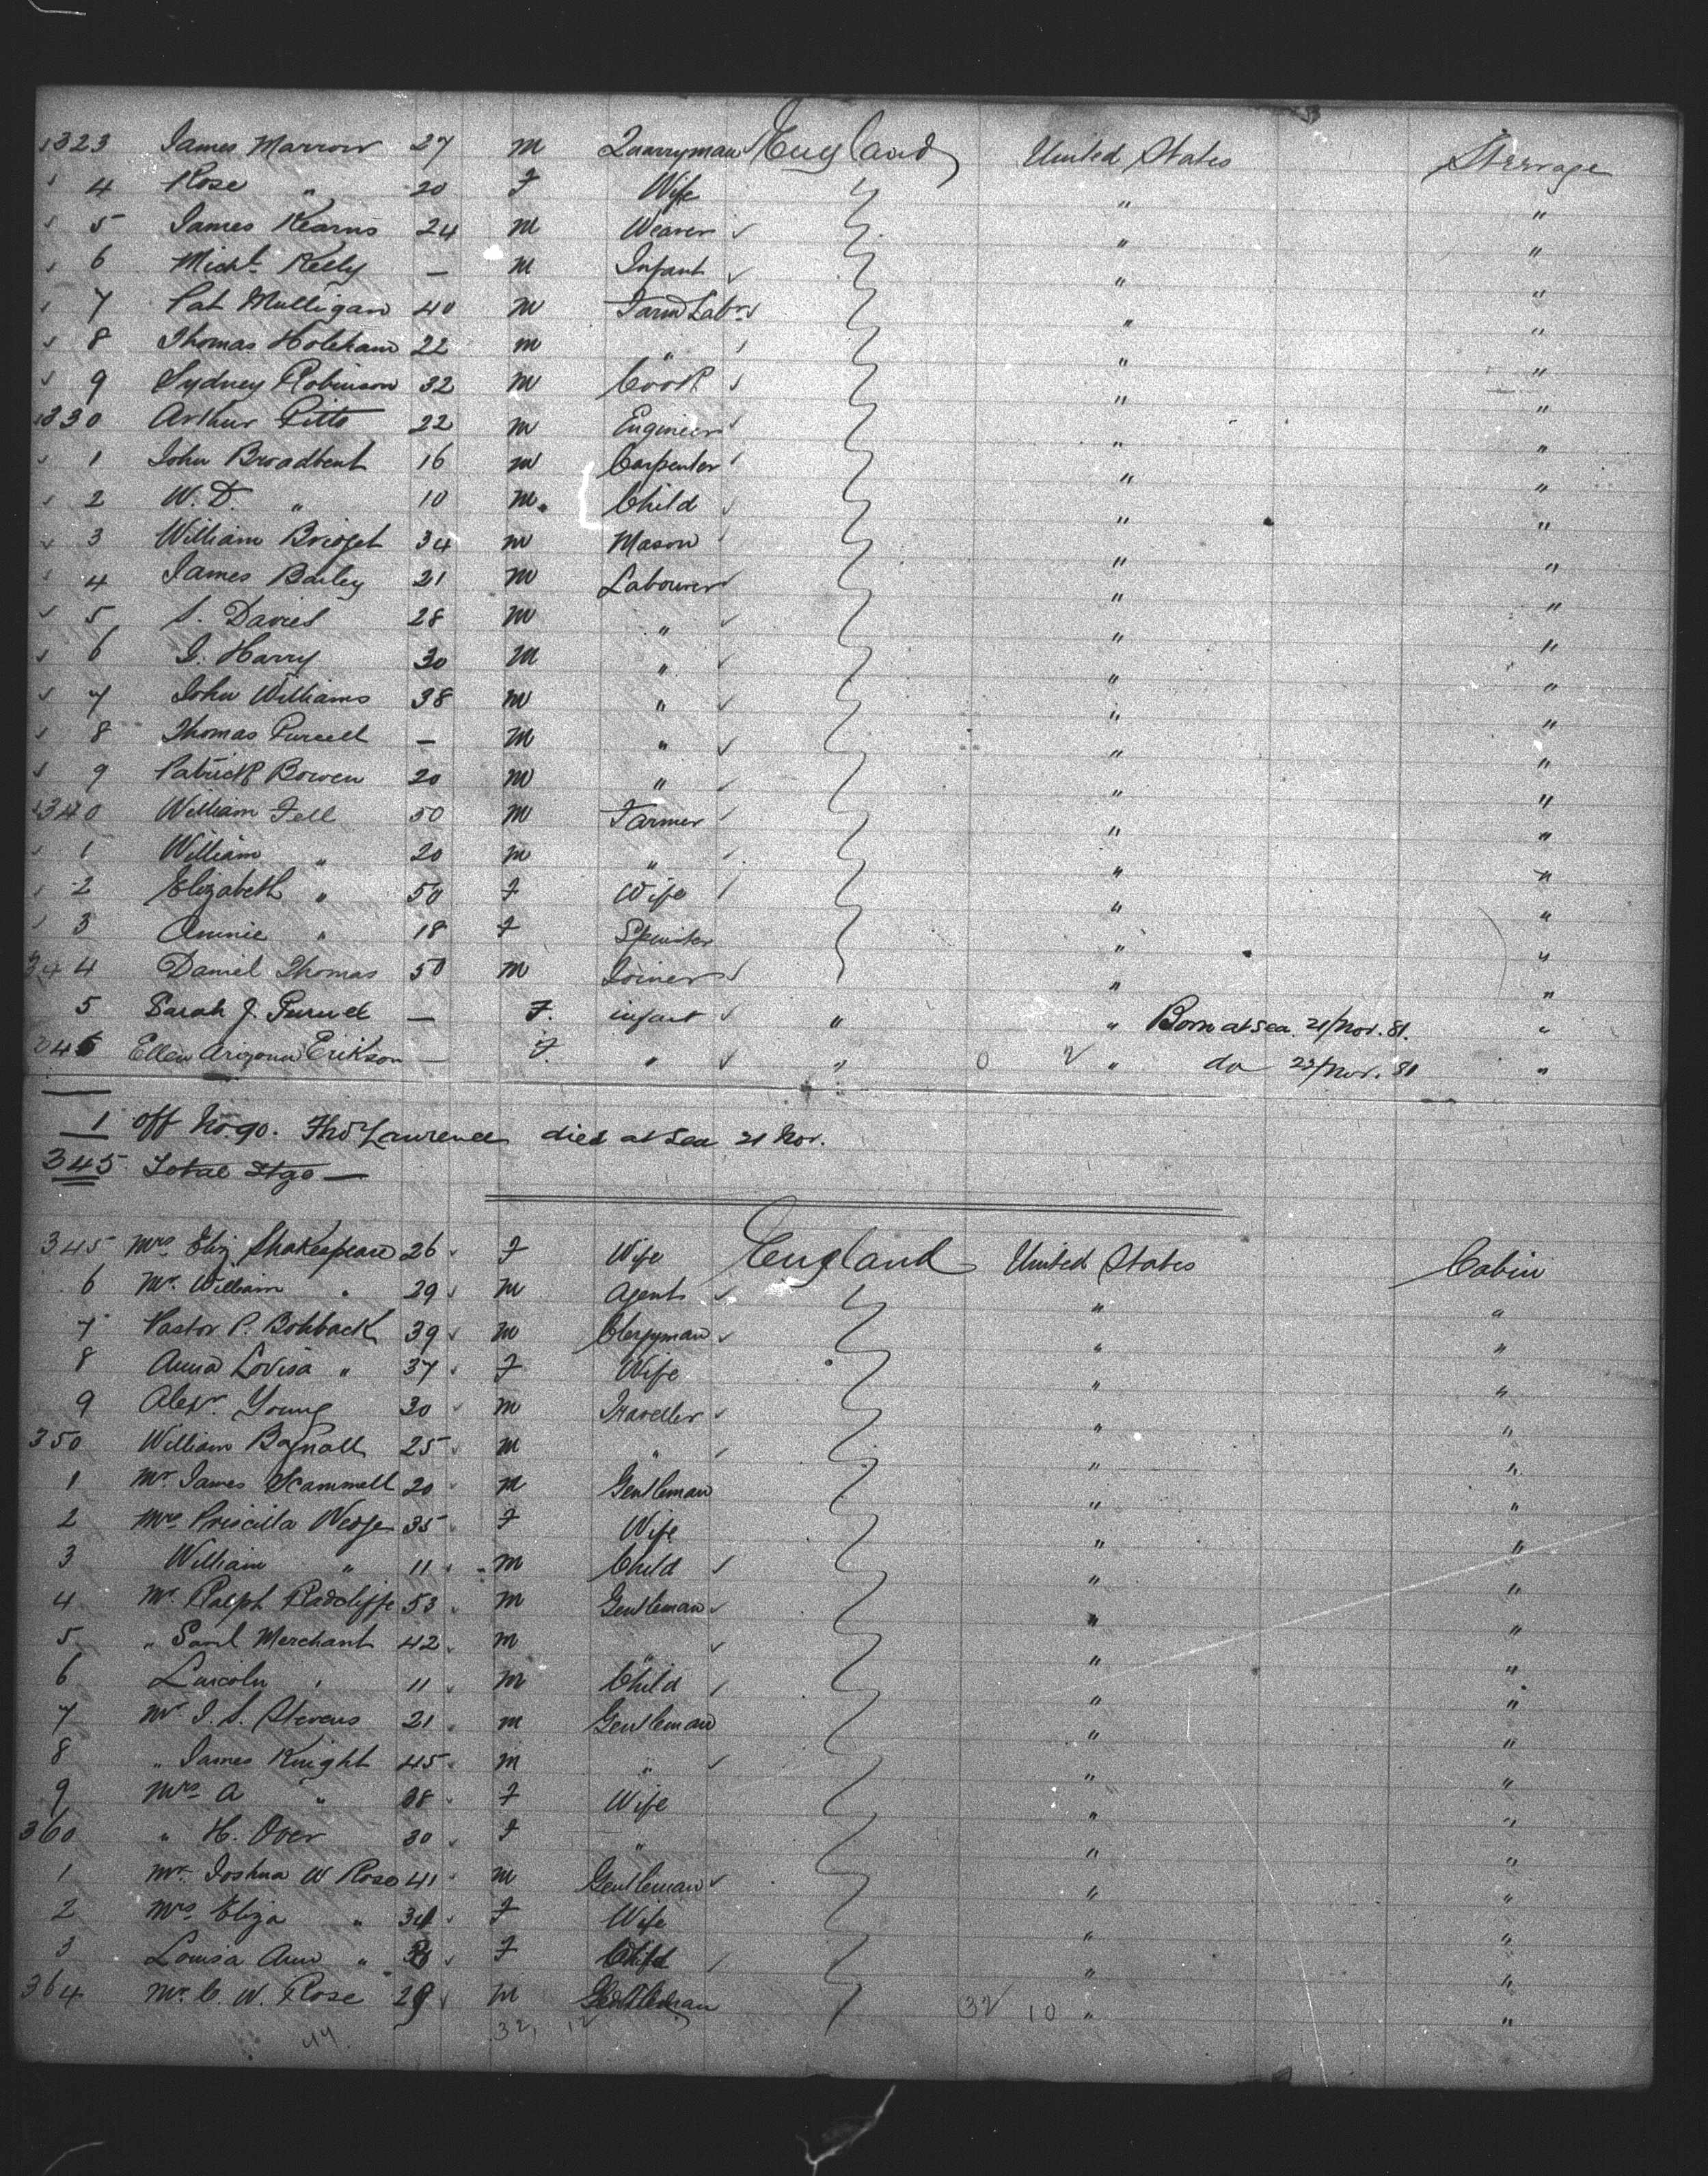 323 James Marrow 27 m Quarryman England United States Steerage
4 Rose " 20 F Wife " "
5 James Kearns 24 m Weaver " "
6 Michl. Kelly — m Infant " "
7 Pat Mulligan 40 m Farm Labr. " "
8 Thomas Holeham 22 m " " "
9 Sydney Robinson 32 m Cook " "
330 Arthur Pitts 22 m Engineer " "
1 John Broadbent 16 m Carpenter " "
2 W. D. " 10 m. Child " "
3 William Bridget 34 m Mason " "
4 James Bailey 21 m Labourer " "
5 S. Davies 28 m " " "
6 J. Harry 30 m " " "
7 John Williams 38 m " " "
8 Thomas Purcell — m " " "
9 Patrick Bowen 20 m " " "
340 William Fell 50 m Farmer " "
1 William " 20 m " " "
2 Elizabeth " 50 F Wife " "
3 Annie " 18 F Spinster " "
344 Daniel Thomas 50 m Joiner " "
5 Sarah J. — F. infant " " Born at sea 21/Nov. 81. "
346 Ellen Arizona Erikson — F. " " 0 2 " do 22/Nov. 81 "
1 off No. 90. Thos Lawrence died at Sea 21 Nov.
345 Total Stge —
345 Mrs. Eliz Shakespeare 26 F Wife England United States Cabin
6 Mr. William " 29 m Agent " "
7 Pastor P. 39 m Clergyman " "
8 Anna Lovisa " 37 F Wife " "
9 Alexr. Young 30 m Traveller " "
350 William Bagnall 25 m " " "
1 Mr James Scammell 20 m Gentleman " "
2 Mrs Priscilla Wedge 35 F Wife " "
3 William " 11 m Child " "
4 Mr Ralph Radcliffe 53 m Gentleman " "
5 " Saml Merchant 42 m " " "
6 Lincoln " 11 m Child " "
7 Mr. J. S. Stevens 21 m Gentleman " "
8 " James Knight 45 m " " "
9 Mrs. A " 38 F Wife " "
360 " H. Over 30 F " " "
1 Mr. Joshua W Rose 41 m Gentleman " "
2 Mrs. Eliza " F Wife " "
3 Louisa Ann " F Child " "
364 Mr. C. W. Rose 29 m Gentleman 32 10 " "
44 32, 12